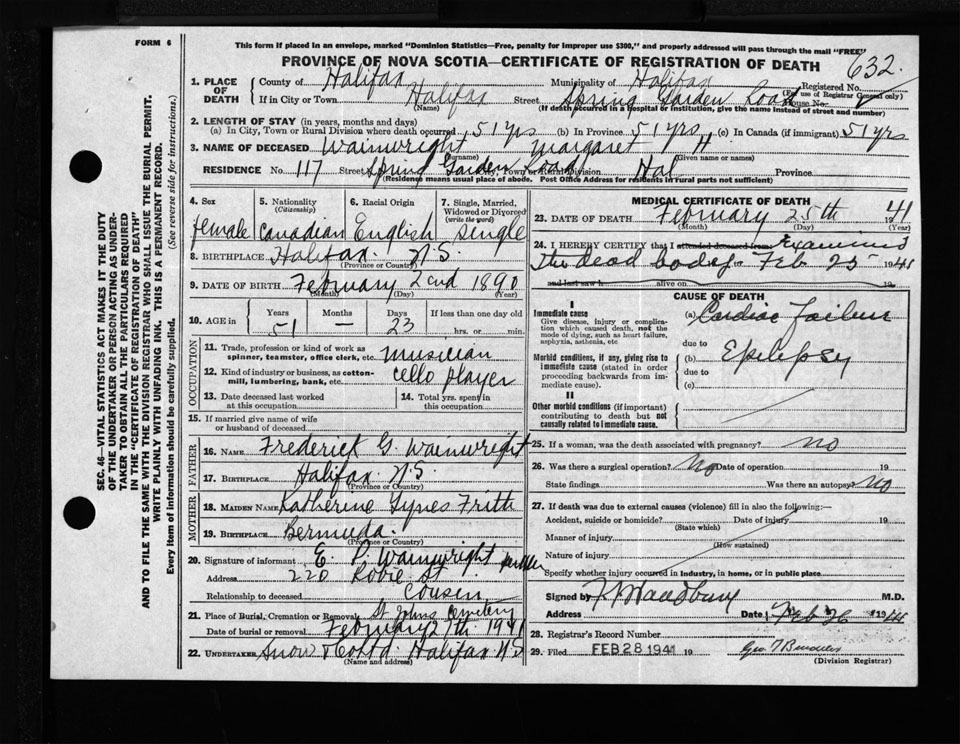 FORM 6
This form if placed in an envelope, marked "Dominion Statistics—Free, penalty for improper use $300," and properly addressed will pass through the mail "FREE"
PROVINCE OF NOVA SCOTIA—CERTIFICATE OF REGISTRATION OF DEATH
632
1. PLACE OF DEATH
County of Halifax Municipality of Halifax Registered No.
(For use of Registrar General only)
If in City or Town Halifax Street Spring Garden Road House No.
(Name) (If death occurred in a hospital or institution, give the name instead of street and number)
2. LENGTH OF STAY (in years, months and days)
(a) In City, Town or Rural Division where death occurred 51 yrs (b) In Province 51 yrs (c) In Canada (if immigrant) 51 yrs
3. NAME OF DECEASED Wainwright Margaret H.
(Surname) (Given name or names)
RESIDENCE No. 117 Street Spring Garden Road City, Town or Rural Division Hal Province
(Residence means usual place of abode. Post Office Address for residents in rural parts not sufficient)
4. Sex female
5. Nationality (Citizenship) Canadian
6. Racial Origin English
7. Single, Married, Widowed or Divorced (write the word) Single
8. BIRTHPLACE Halifax N.S.
(Province or Country)
9. DATE OF BIRTH February 2nd 1890
(Month) (Day) (Year)
10. AGE in Years 51 Months — Days 23 If less than one day hrs. or min.
OCCUPATION
11. Trade, profession or kind of work as spinner, teamster, office clerk, etc. musician
12. Kind of industry or business, as cotton-mill, lumbering, bank, etc. cello player
13. Date deceased last worked at this occupation
14. Total yrs. spent in this occupation
15. If married give name of wife or husband of deceased
FATHER
16. NAME Frederick G. Wainwright
17. BIRTHPLACE Halifax N.S.
(Province or Country)
MOTHER
18. MAIDEN NAME Katherine Frith
19. BIRTHPLACE Bermuda
(Province or Country)
20. Signature of informant E. P. Wainwright
Address 220 Robie St
Relationship to deceased Cousin
21. Place of Burial, Cremation or Removal St Johns Cemetery
Date of burial or removal February 27th 1941
22. UNDERTAKER Snow & Co Ltd. Halifax N S
(Name and address)
MEDICAL CERTIFICATE OF DEATH
23. DATE OF DEATH February 25th 1941
(Month) (Day) (Year)
24. I HEREBY CERTIFY that I attended deceased from Examined
The dead body Feb 25 1941
and last saw h alive on 19
CAUSE OF DEATH
I
Immediate cause
Give disease, injury or complication which caused death, not the mode of dying, such as heart failure, asphyxia, asthenia, etc
(a) Cardiac Failure
due to
Morbid conditions, if any, giving rise to immediate cause (stated in order proceeding backwards from immediate cause).
(b) Epilepsy
due to
(c)
II
Other morbid conditions (if important) contributing to death but not causally related to immediate cause.
25. If a woman, was the death associated with pregnancy? no
26. Was there a surgical operation? No Date of operation 19
State findings Was there an autopsy? no
27. If death was due to external causes (violence) fill in also the following:—
Accident, suicide or homicide? Date of injury 19
(State which)
Manner of injury
(How sustained)
Nature of injury
Specify whether injury occurred in industry, in home, or in public place
Signed by M.D.
Address Date Feb 26 1941
28. Registrar's Record Number
29. Filed FEB 28 1941 19
(Division Registrar)
SEC. 46—VITAL STATISTICS ACT MAKES IT THE DUTY
OF THE UNDERTAKER OR PERSON ACTING AS UNDER-
TAKER TO OBTAIN ALL THE PARTICULARS REQUIRED
IN THE "CERTIFICATE OF REGISTRATION OF DEATH"
AND TO FILE THE SAME WITH THE DIVISION REGISTRAR WHO SHALL ISSUE THE BURIAL PERMIT.
WRITE PLAINLY WITH UNFADING INK. THIS IS A PERMANENT RECORD.
Every item of information should be carefully supplied. (See reverse side for instructions.)